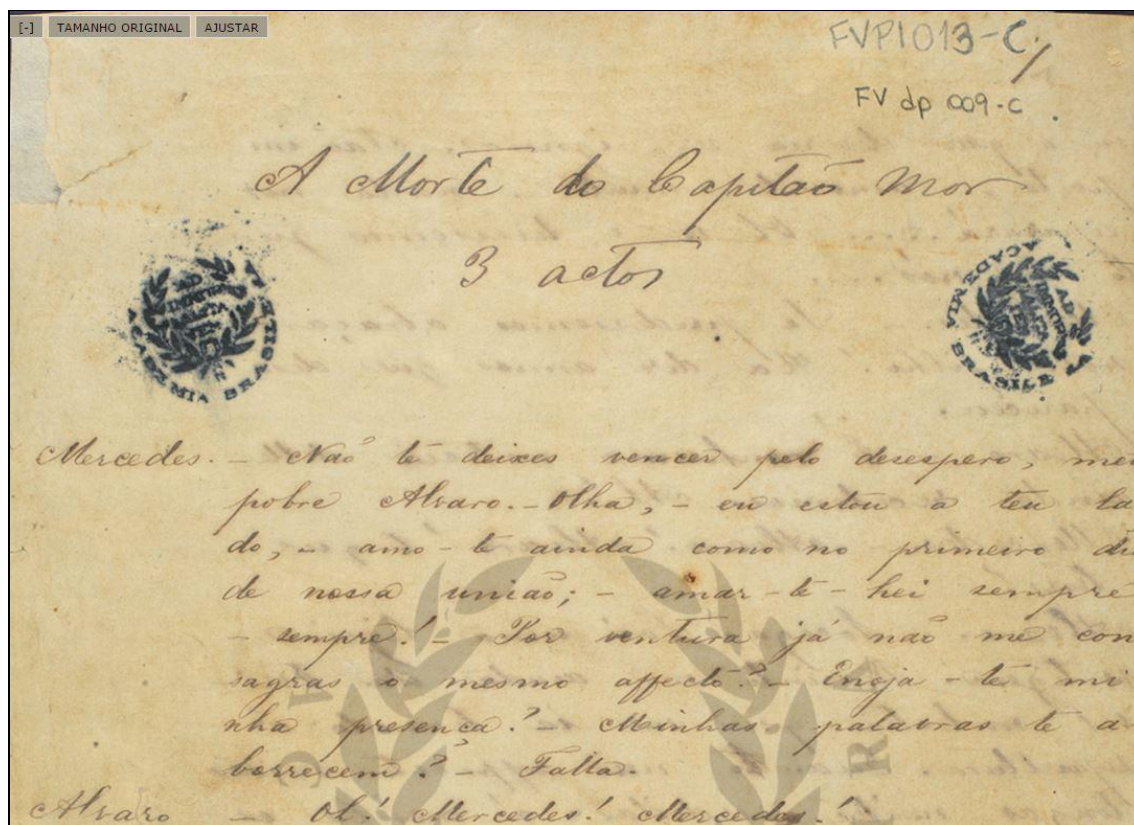 [-] TAMANHO ORIGINAL AJUSTAR
FVPI013-C
FV dp 009-c
A Morte do Capitão Mor
3 actos
ACADEMIA BRASILE
ACADEMIA BRASILE
Mercedes. - Não te deixes vencer pelo desespero, meu
pobre Alvaro. - Olha, - eu estou a teu la
do, - amo-te ainda como no primeiro dia
de nossa união; - amar-te-hei sempre
- sempre! - Por ventura já não me con
sagras o mesmo affecto? - Enoja-te mi
nha presença? Minhas palavras te a
borrecem? - Falla.
Alvaro - Oh! Mercedes! Mercedes!